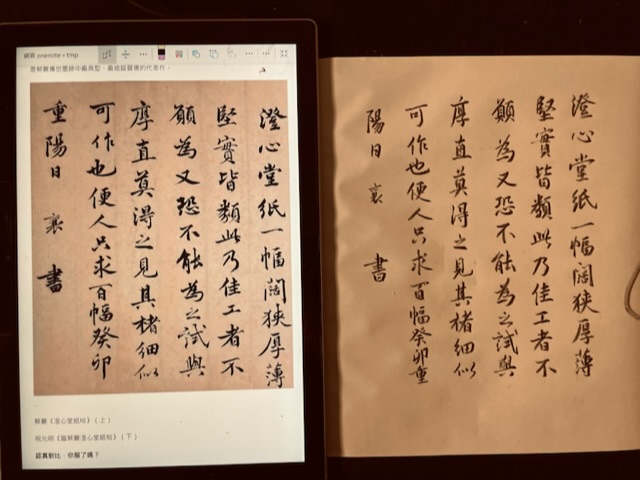 網頁 onenote・tmp
是蔡襄傳世墨跡中最典型、最循蹈晉唐的代表作。
澄心堂紙一幅闊狹厚薄
堅實皆類此乃佳工者不
願為又恐不能為之試與
厚直莫得之見其楮細似
可作也便人只求百幅癸卯
重陽日 襄 書
蔡襄《澄心堂紙帖》（上）
祝允明《臨蔡襄澄心堂紙帖》（下）
認真對比，你服了嗎？
澄心堂紙一幅闊狹厚薄
堅實皆類此乃佳工者不
願為又恐不能為之試與
厚直莫得之見其楮細似
可作也便人只求百幅癸卯重
陽日 襄 書